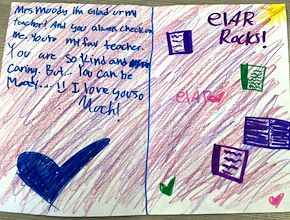 Mrs Moody I'm Glad ur my
teacher! And you always check on
me. You're my fav teacher.
You are so kind and
Caring. But... You can be
Moody....!! I love you so
Much!
ELAR
Rocks!
ELAR